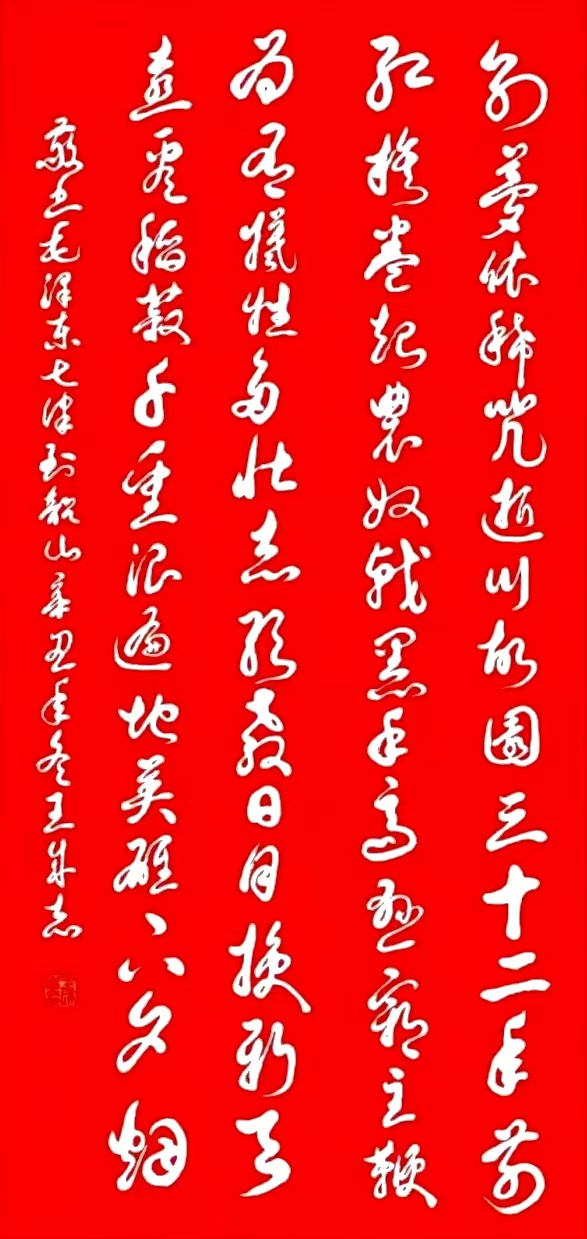 别夢依稀咒逝川故園三十二年前
紅旗卷起農奴戟黑手高懸霸主鞭
為有犧牲多壯志敢教日月換新天
喜看稻菽千重浪遍地英雄下夕烟
敬書毛澤東七律到韶山辛丑年冬王志